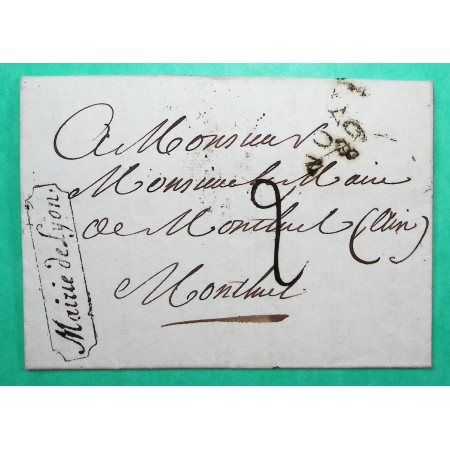 A Monsieur
Monsieur le Maire
de Montluel (Ain)
Montluel
2
Mairie de Lyon.
68
LYON